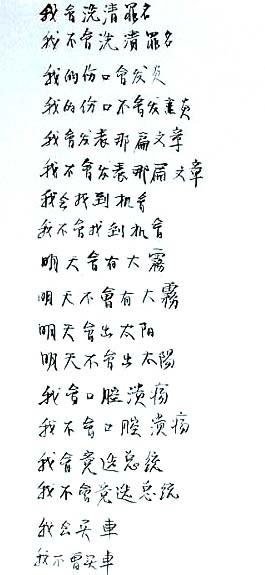 我會洗清罪名
我不會洗清罪名
我的份口會发炎
我的份口不會发炎
我會发表那篇文章
我不會发表那篇文章
我会找到机會
我不會找到机會
明天會有大霧
明天不會有大霧
明天會出太阳
明天不會出太陽
我會口腔溃疡
我不會口腔溃疡
我會竞选总统
我不會竞选总统
我会买車
我不會买車